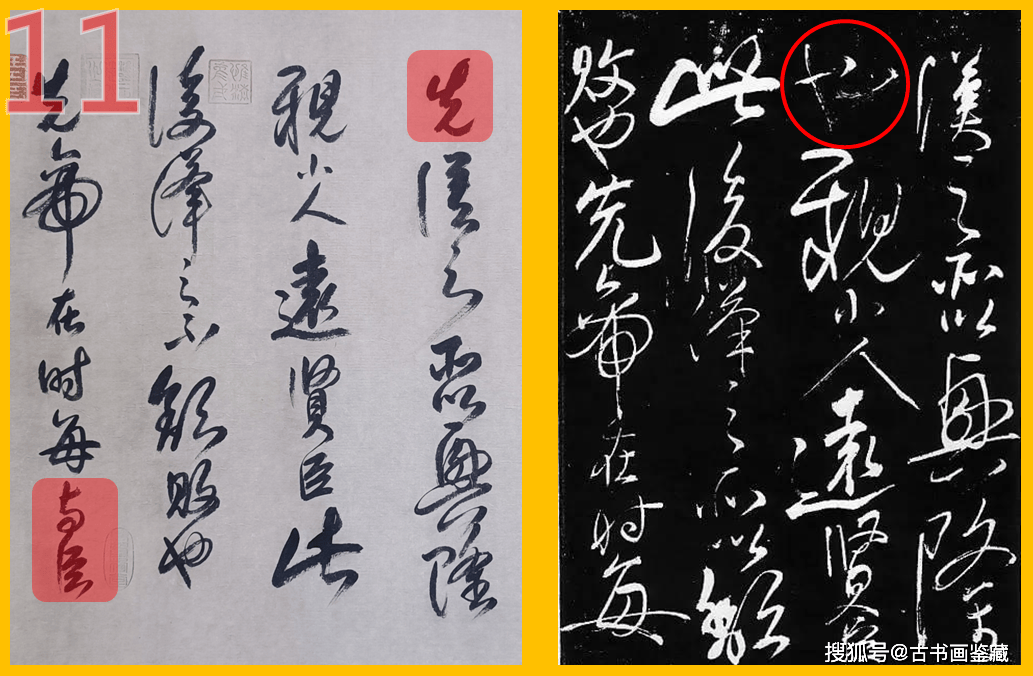 11
先漢之所以興隆
親小人遠賢臣此
後漢之所頹敗也
先帝在時每與臣
漢之所以興隆
也親小人遠賢臣
此後漢之所以頹
敗也先帝在時每
搜狐号@古书画鉴藏